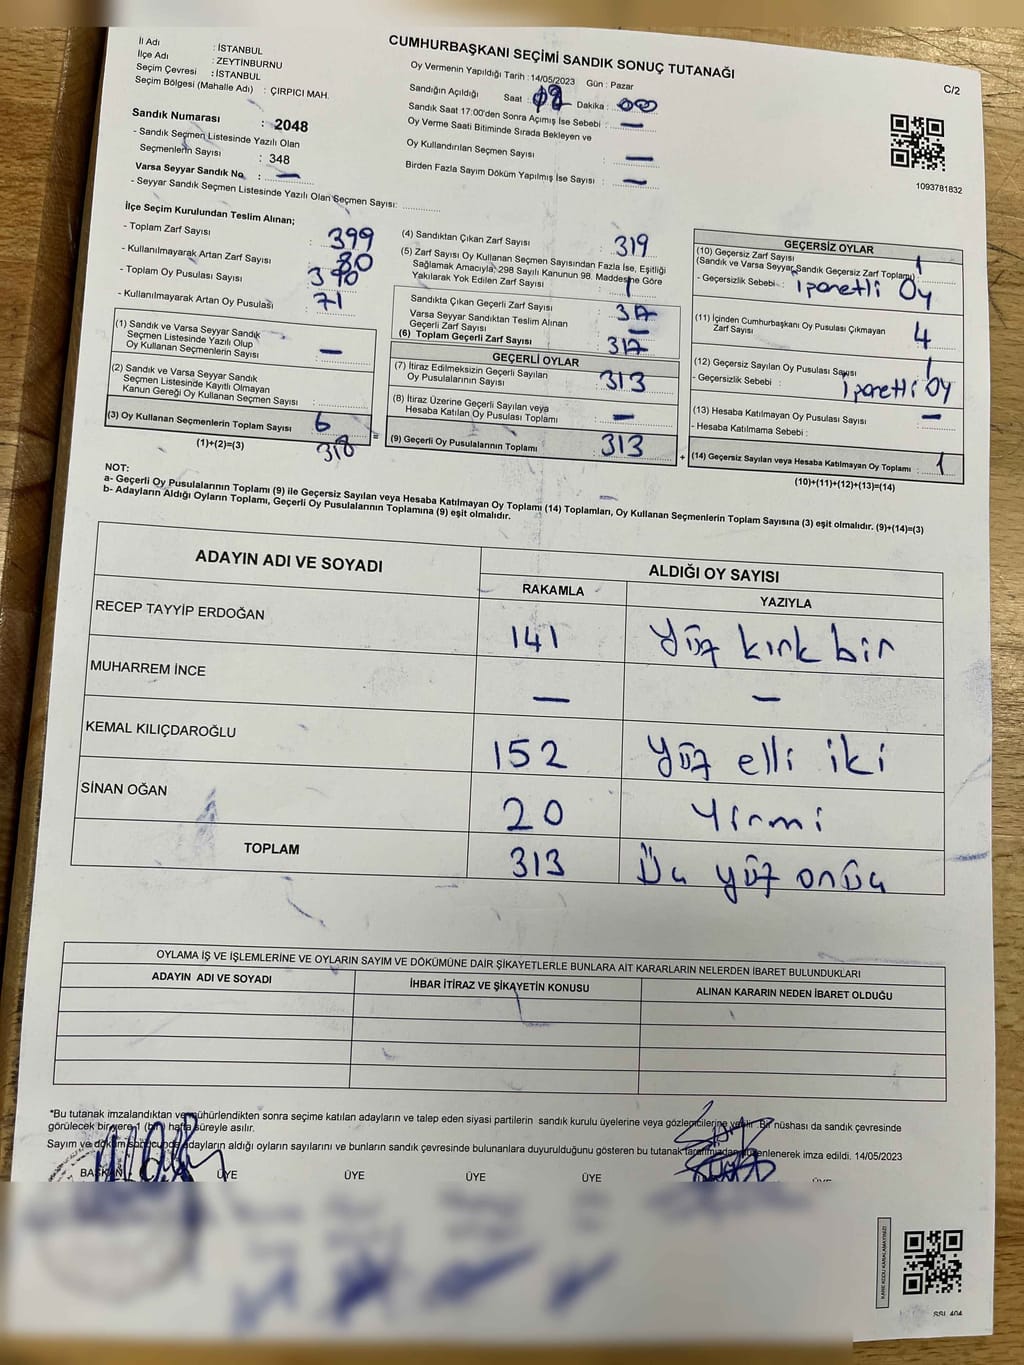 CUMHURBAŞKANI SEÇİMİ SANDIK SONUÇ TUTANAĞI
C/2
İl Adı : İSTANBUL
İlçe Adı : ZEYTİNBURNU
Seçim Çevresi : İSTANBUL
Seçim Bölgesi (Mahalle Adı) : ÇIRPICI MAH.
Sandık Numarası : 2048
- Sandık Seçmen Listesinde Yazılı Olan
Seçmenlerin Sayısı : 348
Varsa Seyyar Sandık No : —
- Seyyar Sandık Seçmen Listesinde Yazılı Olan Seçmen Sayısı: ............
Oy Vermenin Yapıldığı Tarih : 14/05/2023 Gün : Pazar
Sandığın Açıldığı Saat : Dakika : 00
Sandık Saat 17:00'den Sonra Açımış İse Sebebi : —
Oy Verme Saati Bitiminde Sırada Bekleyen ve
Oy Kullandırılan Seçmen Sayısı : —
Birden Fazla Sayım Döküm Yapılmış İse Sayısı : —
1093781832
İlçe Seçim Kurulundan Teslim Alınan;
- Toplam Zarf Sayısı : 399
- Kullanılmayarak Artan Zarf Sayısı : 80
- Toplam Oy Pusulası Sayısı : 390
- Kullanılmayarak Artan Oy Pusulası : 71
(1) Sandık ve Varsa Seyyar Sandık
Seçmen Listesinde Yazılı Olup
Oy Kullanan Seçmenlerin Sayısı : —
(2) Sandık ve Varsa Seyyar Sandık
Seçmen Listesinde Kayıtlı Olmayan
Kanun Gereği Oy Kullanan Seçmen Sayısı :
(3) Oy Kullanan Seçmenlerin Toplam Sayısı : 6
318
(1)+(2)=(3)
=
(4) Sandıktan Çıkan Zarf Sayısı : 319
(5) Zarf Sayısı Oy Kullanan Seçmen Sayısından Fazla İse, Eşitliği
Sağlamak Amacıyla, 298 Sayılı Kanunun 98. Maddesine Göre
Yakılarak Yok Edilen Zarf Sayısı : 1
Sandıkta Çıkan Geçerli Zarf Sayısı : 317
Varsa Seyyar Sandıktan Teslim Alınan
Geçerli Zarf Sayısı : —
(6) Toplam Geçerli Zarf Sayısı : 317
GEÇERLİ OYLAR
(7) İtiraz Edilmeksizin Geçerli Sayılan
Oy Pusulalarının Sayısı : 313
(8) İtiraz Üzerine Geçerli Sayılan veya
Hesaba Katılan Oy Pusulası Toplamı : —
(9) Geçerli Oy Pusulalarının Toplamı : 313
+
GEÇERSİZ OYLAR
(10) Geçersiz Zarf Sayısı : 1
(Sandık ve Varsa Seyyar Sandık Geçersiz Zarf Toplamı)
- Geçersizlik Sebebi : İşaretli Oy
(11) İçinden Cumhurbaşkanı Oy Pusulası Çıkmayan
Zarf Sayısı : 4
(12) Geçersiz Sayılan Oy Pusulası Sayısı : 1
- Geçersizlik Sebebi : İşaretli Oy
(13) Hesaba Katılmayan Oy Pusulası Sayısı : —
- Hesaba Katılmama Sebebi :
(14) Geçersiz Sayılan veya Hesaba Katılmayan Oy Toplamı : 1
(10)+(11)+(12)+(13)=(14)
NOT:
a- Geçerli Oy Pusulalarının Toplamı (9) ile Geçersiz Sayılan veya Hesaba Katılmayan Oy Toplamı (14) Toplamları, Oy Kullanan Seçmenlerin Toplam Sayısına (3) eşit olmalıdır. (9)+(14)=(3)
b- Adayların Aldığı Oyların Toplamı, Geçerli Oy Pusulalarının Toplamına (9) eşit olmalıdır.
ADAYIN ADI VE SOYADI
ALDIĞI OY SAYISI
RAKAMLA YAZIYLA
RECEP TAYYİP ERDOĞAN 141 Yüz kırk bir
MUHARREM İNCE — —
KEMAL KILIÇDAROĞLU 152 Yüz elli iki
SİNAN OĞAN 20 Yirmi
TOPLAM 313 Üç yüz onüç
OYLAMA İŞ VE İŞLEMLERİNE VE OYLARIN SAYIM VE DÖKÜMÜNE DAİR ŞİKAYETLERLE BUNLARA AİT KARARLARIN NELERDEN İBARET BULUNDUKLARI
ADAYIN ADI VE SOYADI İHBAR İTİRAZ VE ŞİKAYETİN KONUSU ALINAN KARARIN NEDEN İBARET OLDUĞU
*Bu tutanak imzalandıktan ve mühürlendikten sonra seçime katılan adayların ve talep eden siyasi partilerin sandık kurulu üyelerine veya gözlemcilerine verilir. Bir nüshası da sandık çevresinde
görülecek bir yere 1 (bir) hafta süreyle asılır.
Sayım ve döküm sonucunda adayların aldığı oyların sayılarını ve bunların sandık çevresinde bulunanlara duyurulduğunu gösteren bu tutanak tarafımızdan düzenlenerek imza edildi. 14/05/2023
BAŞKAN ÜYE ÜYE ÜYE ÜYE ÜYE
KARE KODU KARALAMAYINIZ!